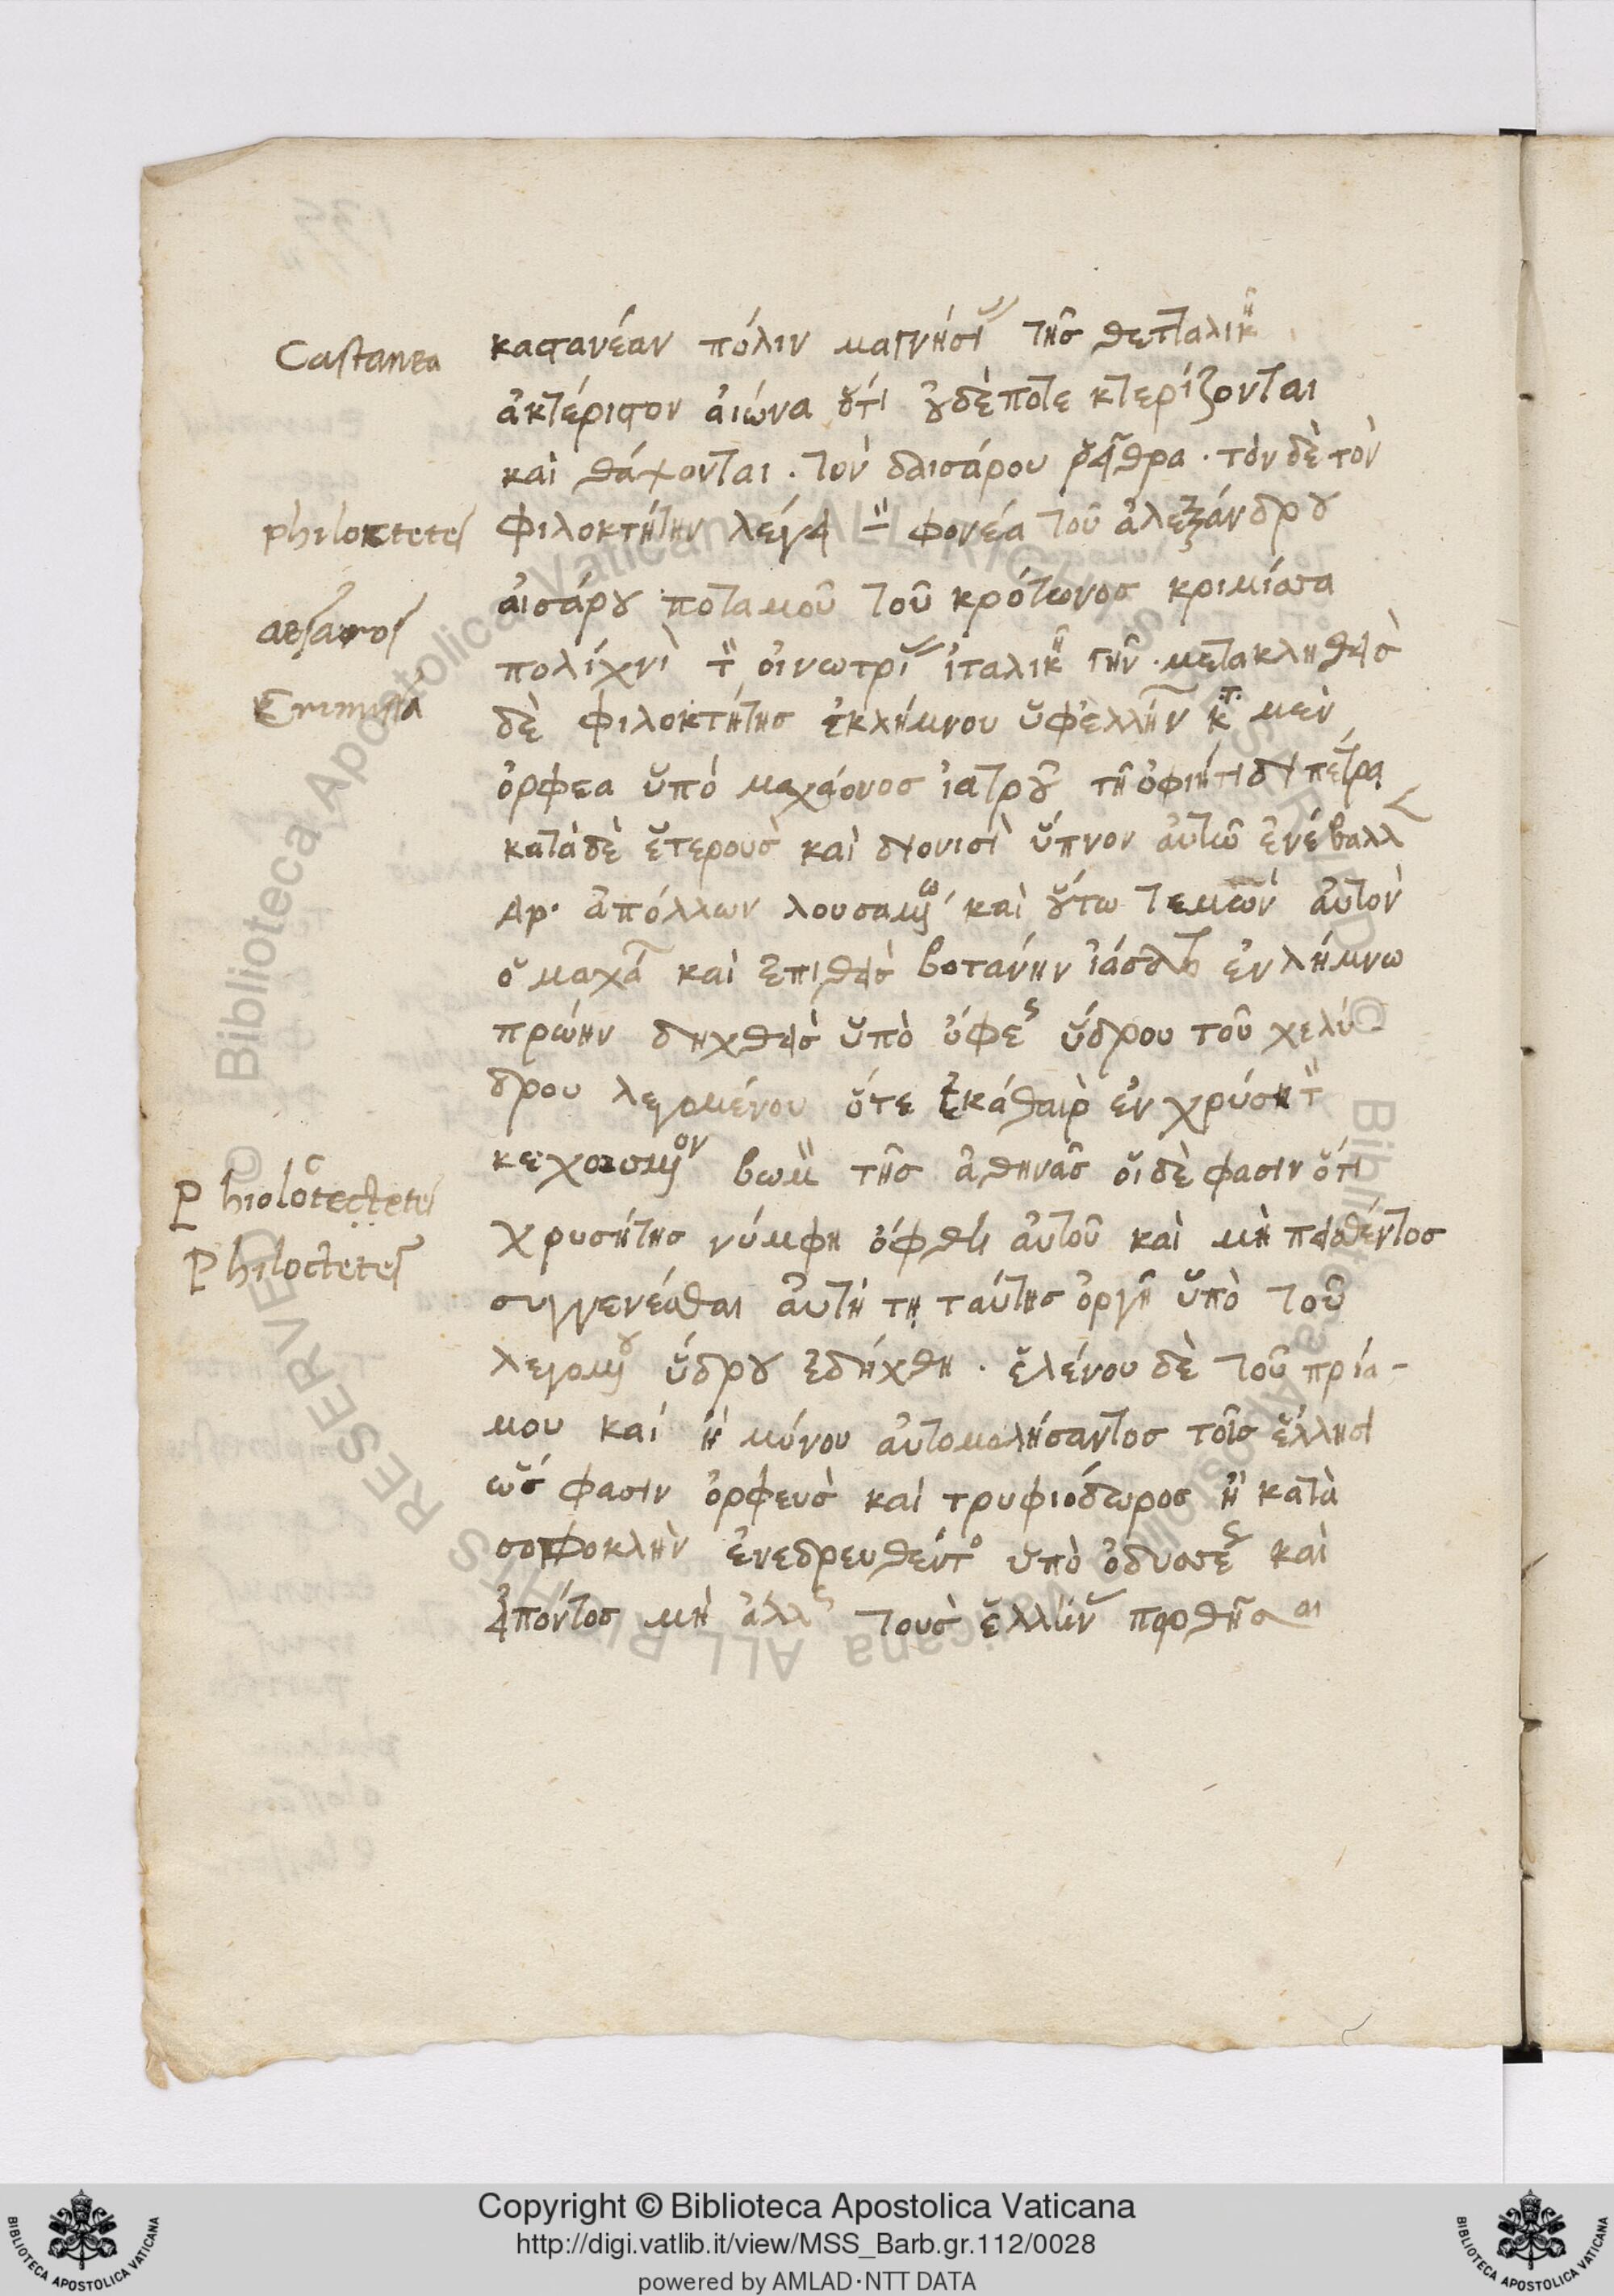 Castanea
καστανέαν πόλιν μαγνησί τῆς θετταλικῆ
ἀκτέριστον ἀιώνα ὅτι ȣδὲποτε κτερίζονται
καὶ θάπτονται · τὸν δαισάρου ῥεῖθρα · τὸν δὲ τὸν
philoktetes
φιλοκτήτην λέγει τ̈ φονέα τοῦ ἀλεξάνδρȣ
aesaros
ἀισάρȣ ποταμοῦ τοῦ κρότωνος κριμίασα
Crimissa
πολίχνι τ̈ οἰνωτρι ἰταλικῆ γῆν · μετακληθεὶς
δὲ φιλοκτήτης ἐκλήμνου ὑφἑλλήν κτ μὲν
ὀρφέα ὑπὸ μαχάονος ἰατρȣ͂ τῆ ὀφιήτιδι πέτρα
κατὰ δὲ ἑτερους καὶ διονισὶ ὕπνον ἀυτῶ ἐνέβαλλ
ἀπόλλων λουσαμω καὶ ȣ̔́τω τεμὼν ἀυτὸν
ὁ μαχα καὶ ἐπιθεὶς βοτάνην ἰάσατο ἐν λήμνω
πρώην δηχθεὶς ὑπὸ ὄφες ὕδρου τοῦ χελύ-
δρου λεγομένου ὅτε ἐκάθαιρ ἐν χρύση τ̈
κεχοσμον βωμ̈ τῆς ἀθηνᾶς οἱ δὲ φασιν ὅτι
Philotectetes
χρυσήτης νύμφη ὀφθεὶ ἀυτοῦ καὶ μὴ πειθέντος
Philoctetes
συγγενέσθαι ἀυτῆ τῃ ταύτης ὀργῆ ὑπὸ τοῦ
λεγομȣ ὕδρȣ ἐδήχθη · ἑλένου δὲ τοῦ πριά-
μου καὶ ἢ μόνου ἀυτομολήσαντος τοῖς ἕλλησι
ὥς φασιν ὀρφεὺς καὶ τρυφιόδωρος ἢ κατὰ
σοφοκλὴν ἐνεδρευθέντο ὑπὸ ὀδυσσες καὶ
ἐιπόντος μὴ ἀλλς τοὺς ἕλλην πορθῆσαι
Copyright © Biblioteca Apostolica Vaticana
http://digi.vatlib.it/view/MSS_Barb.gr.112/0028
powered by AMLAD·NTT DATA
BIBLIOTECA APOSTOLICA VATICANA
BIBLIOTECA APOSTOLICA VATICANA